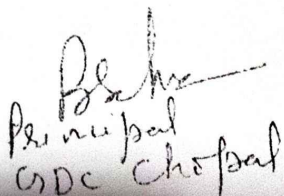 Principal
GDC Chopal